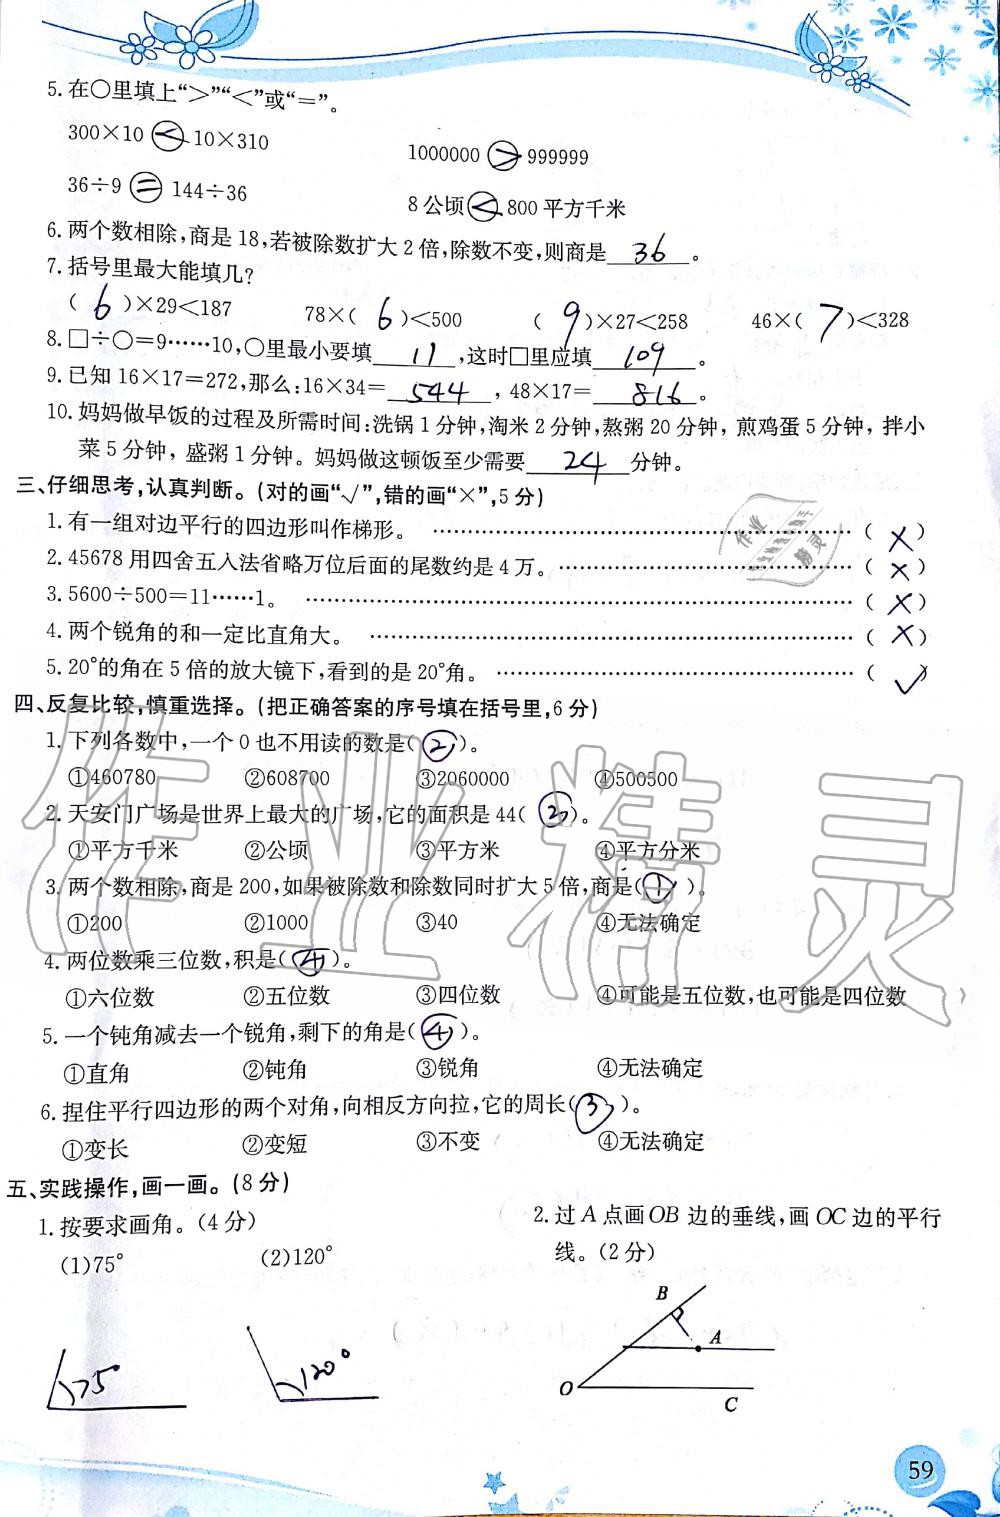 5. 在○里填上“＞”“＜”或“＝”。
300×10 < 10×310
1000000 > 999999
36÷9 = 144÷36
8公顷 < 800平方千米
6. 两个数相除,商是18,若被除数扩大2倍,除数不变,则商是 36 。
7. 括号里最大能填几?
( 6 )×29＜187 78×( 6 )＜500 ( 9 )×27＜258 46×( 7 )＜328
8. □÷○=9……10,○里最小要填 11 ,这时□里应填 109 。
9. 已知16×17=272,那么:16×34= 544 ,48×17= 816 。
10. 妈妈做早饭的过程及所需时间:洗锅1分钟,淘米2分钟,熬粥20分钟, 煎鸡蛋5分钟, 拌小
菜5分钟, 盛粥1分钟。妈妈做这顿饭至少需要 24 分钟。
三、仔细思考,认真判断。(对的画“√”,错的画“×”,5分)
1. 有一组对边平行的四边形叫作梯形。 ……( × )
2. 45678用四舍五入法省略万位后面的尾数约是4万。 ……( × )
3. 5600÷500=11……1。 ……( × )
4. 两个锐角的和一定比直角大。 ……( × )
5. 20°的角在5倍的放大镜下,看到的是20°角。 ……( √ )
四、反复比较,慎重选择。(把正确答案的序号填在括号里,6分)
1. 下列各数中,一个0也不用读的数是( ② )。
①460780 ②608700 ③2060000 ④500500
2. 天安门广场是世界上最大的广场,它的面积是44( ② )。
①平方千米 ②公顷 ③平方米 ④平方分米
3. 两个数相除,商是200,如果被除数和除数同时扩大5倍,商是( ① )。
①200 ②1000 ③40 ④无法确定
4. 两位数乘三位数,积是( ④ )。
①六位数 ②五位数 ③四位数 ④可能是五位数,也可能是四位数
5. 一个钝角减去一个锐角,剩下的角是( ④ )。
①直角 ②钝角 ③锐角 ④无法确定
6. 捏住平行四边形的两个对角,向相反方向拉,它的周长( ③ )。
①变长 ②变短 ③不变 ④无法确定
五、实践操作,画一画。(8分)
1. 按要求画角。(4分)
(1)75° (2)120°
75°
120°
2. 过A点画OB边的垂线,画OC边的平行
线。(2分)
B
A
O
C
59
作业精灵
作业
精灵